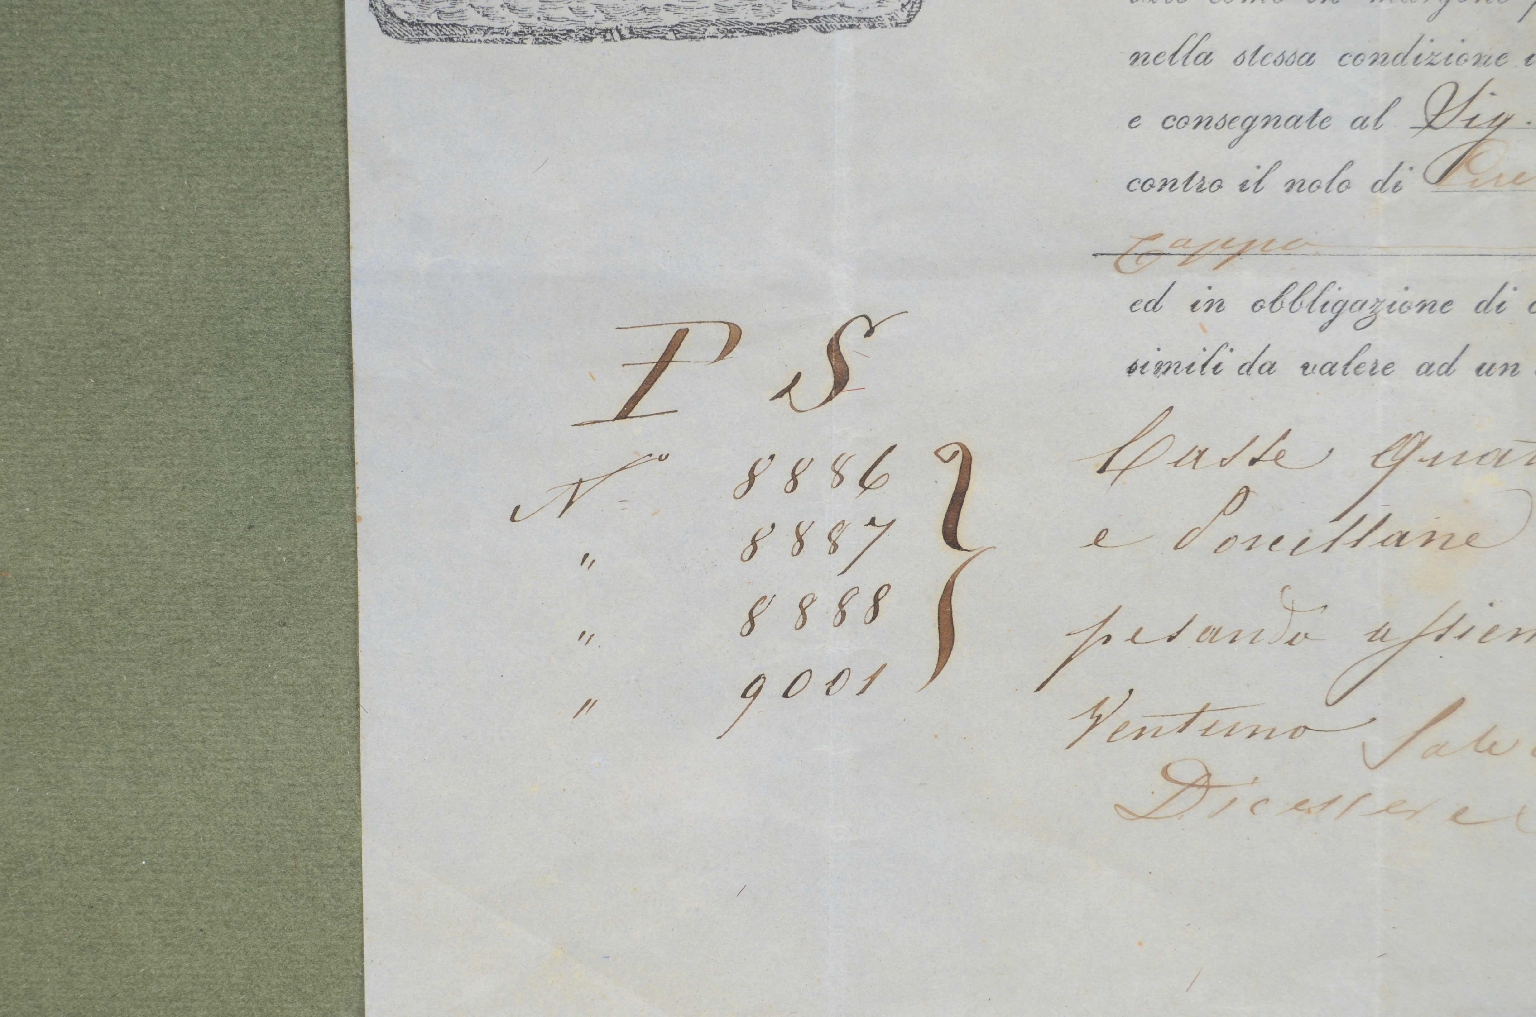 nella stessa condizione
e consegnate al Sig.
contro il nolo di
Cappa
ed in obbligazione di
simili da valere ad un
P S
N.º 8886
" 8887
" 8888
" 9001
Casse Quat
e Porcellane
pesando assiem
Ventuno
Dicessere